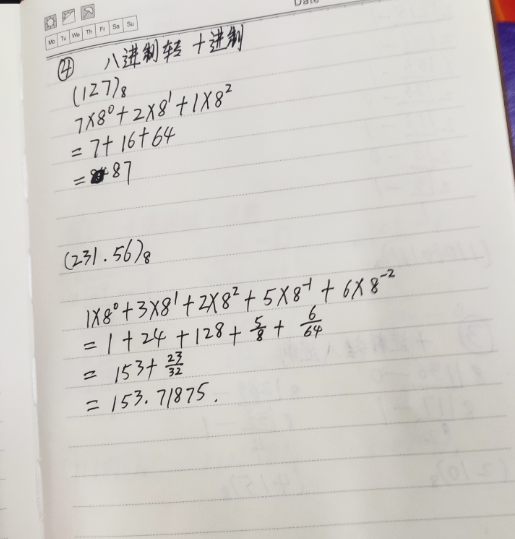 Date
Mo Tu We Th Fr Sa Su
④ 八进制转十进制
(127)₈
7×8⁰+2×8¹+1×8²
=7+16+64
=87
(231.56)₈
1×8⁰+3×8¹+2×8²+5×8⁻¹+6×8⁻²
=1+24+128+5/8+6/64
=153+23/32
=153.71875.